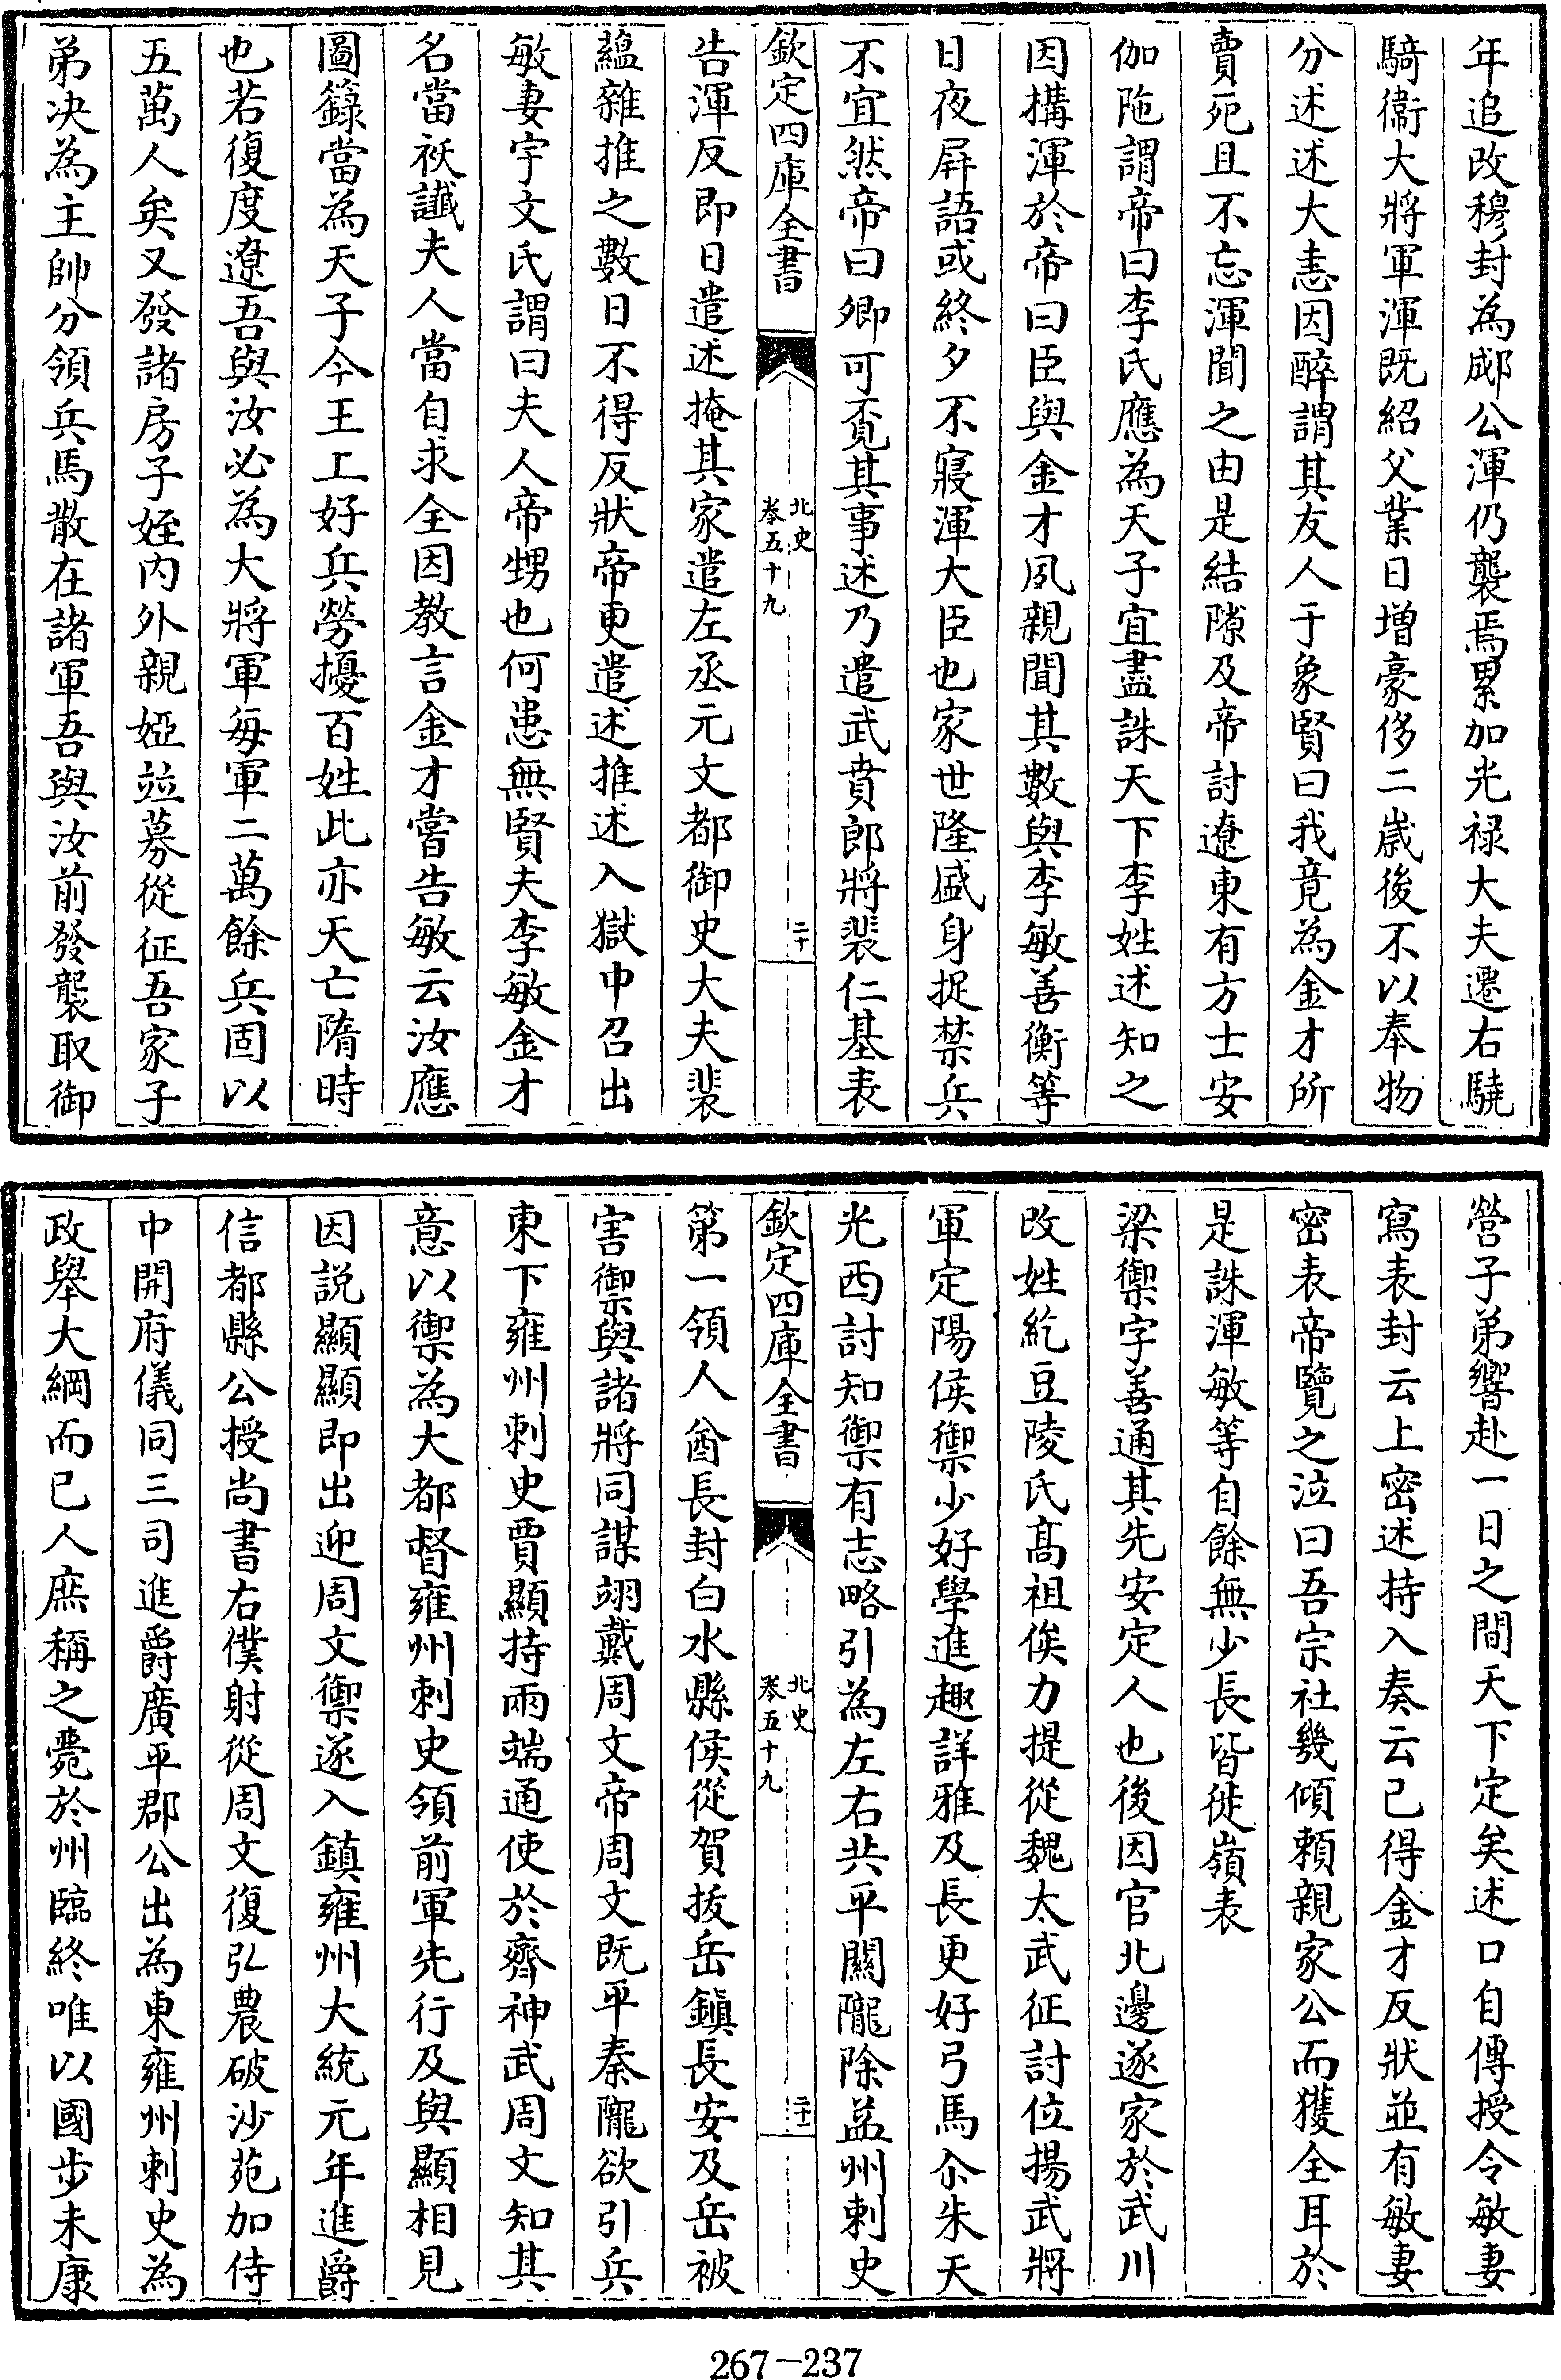 年追改穆封為郕公渾仍襲焉累加光禄大夫遷右驍
騎衞大將軍渾既紹父業日增豪侈二歳後不以奉物
分述述大恚因醉謂其友人于象賢曰我竟為金才所
賣死且不忘渾聞之由是結隙及帝討遼東有方士安
伽陁謂帝曰李氏應為天子宜盡誅天下李姓述知之
因搆渾於帝曰臣與金才夙親聞其數與李敏善衡等
日夜屏語或終夕不寢渾大臣也家世隆盛身捉禁兵
不宜然帝曰卿可覔其事述乃遣武賁郎將裴仁基表
欽定四庫全書
北史
卷五十九
二十
告渾反即日遣述掩其家遣左丞元文都御史大夫裴
藴雜推之數日不得反狀帝更遣述推述入獄中召出
敏妻宇文氏謂曰夫人帝甥也何患無賢夫李敏金才
名當袄讖夫人當自求全因教言金才嘗告敏云汝應
圖籙當為天子今王上好兵勞擾百姓此亦天亡隋時
也若復度遼吾與汝必為大將軍每軍二萬餘兵固以
五萬人矣又發諸房子姪内外親婭竝募從征吾家子
弟决為主帥分領兵馬散在諸軍吾與汝前發襲取御
營子弟響赴一日之間天下定矣述口自傳授令敏妻
寫表封云上密述持入奏云已得金才反狀並有敏妻
密表帝覽之泣曰吾宗社幾傾頼親家公而獲全耳於
是誅渾敏等自餘無少長皆徙嶺表
梁禦字善通其先安定人也後因官北邊遂家於武川
改姓紇豆陵氏髙祖俟力提從魏太武征討位揚武將
軍定陽侯禦少好學進趣詳雅及長更好弓馬尒朱天
光西討知禦有志略引為左右共平關隴除益州刺史
欽定四庫全書
北史
卷五十九
二十一
第一領人酋長封白水縣侯從賀拔岳鎮長安及岳被
害禦與諸將同謀翊戴周文帝周文既平秦隴欲引兵
東下雍州刺史賈顯持兩端通使於齊神武周文知其
意以禦為大都督雍州刺史領前軍先行及與顯相見
因説顯顯即出迎周文禦遂入鎮雍州大統元年進爵
信都縣公授尚書右僕射從周文復弘農破沙苑加侍
中開府儀同三司進爵廣平郡公出為東雍州刺史為
政舉大綱而已人庶稱之薨於州臨終唯以國步未康
267-237